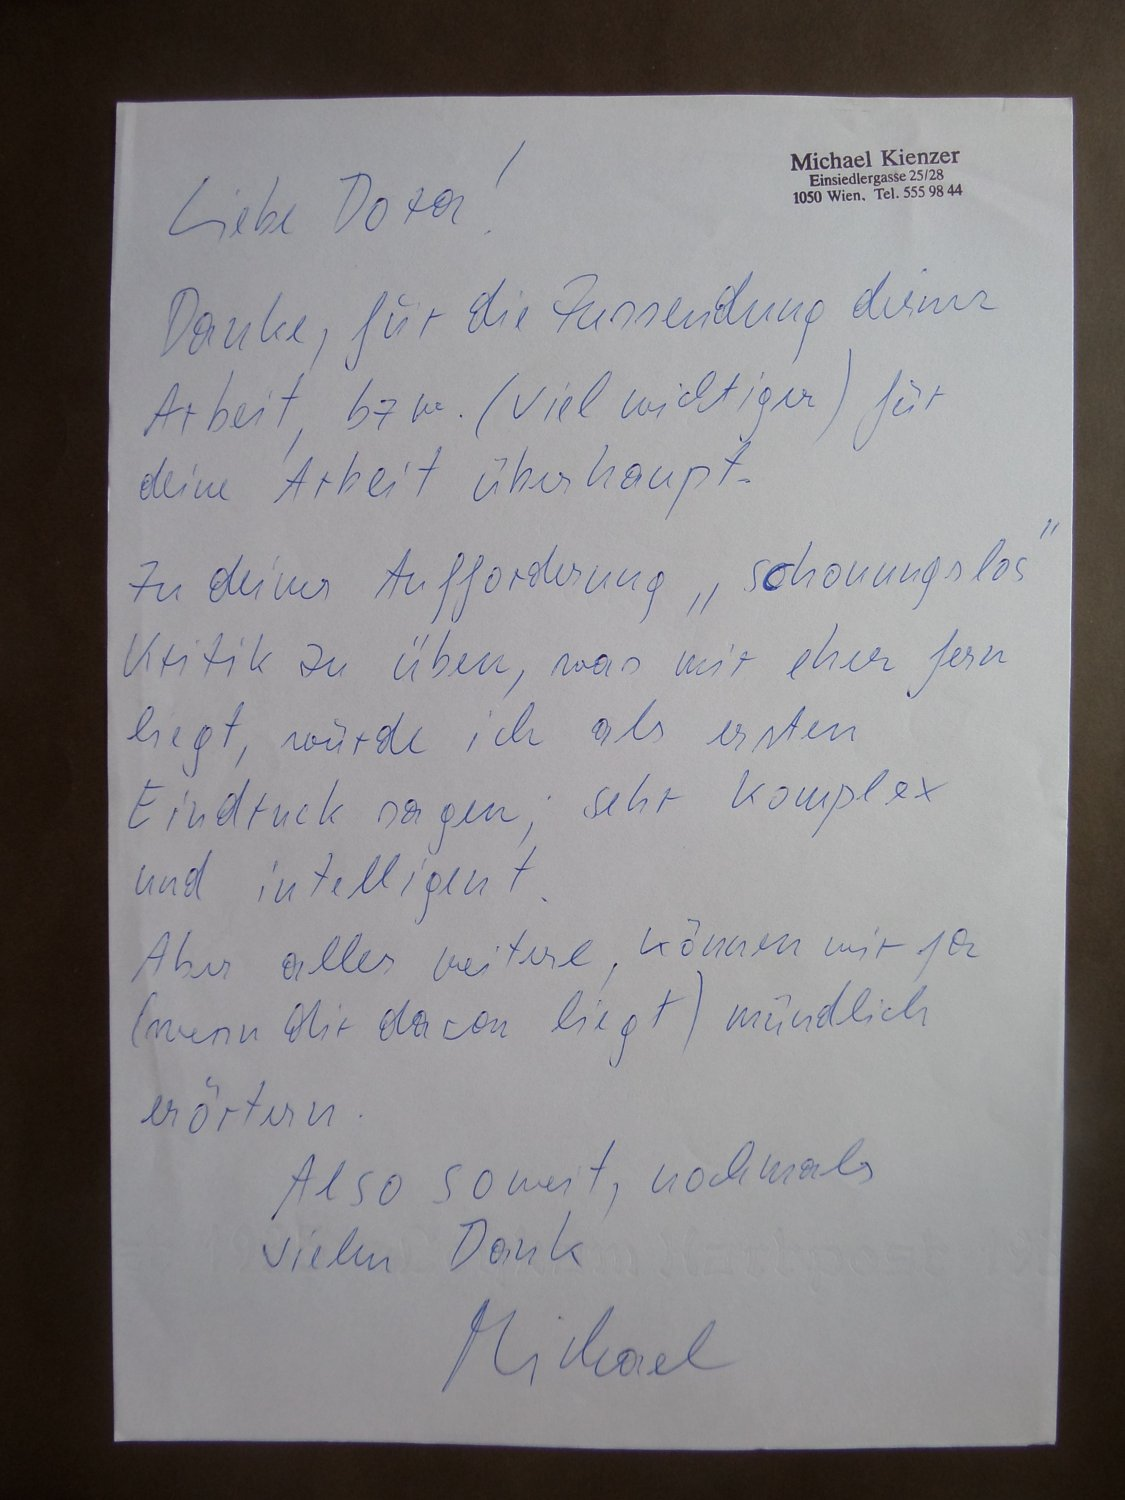 Michael Kienzer
Einsiedlergasse 25/28
1050 Wien, Tel. 555 98 44
Liebe Dora!
Danke, für die Zussendung deiner
Arbeit, bzw. (viel wichtiger) für
deine Arbeit überhaupt.
Zu deiner Aufforderung „schonungslos"
Kritik zu üben, was mir eher fern
liegt, würde ich als ersten
Eindruck sagen; sehr komplex
und intelligent.
Aber alles weitere, können wir ja
(wenn dir daran liegt) mündlich
erörtern.
Also soweit, nochmals
vielen Dank
Michael